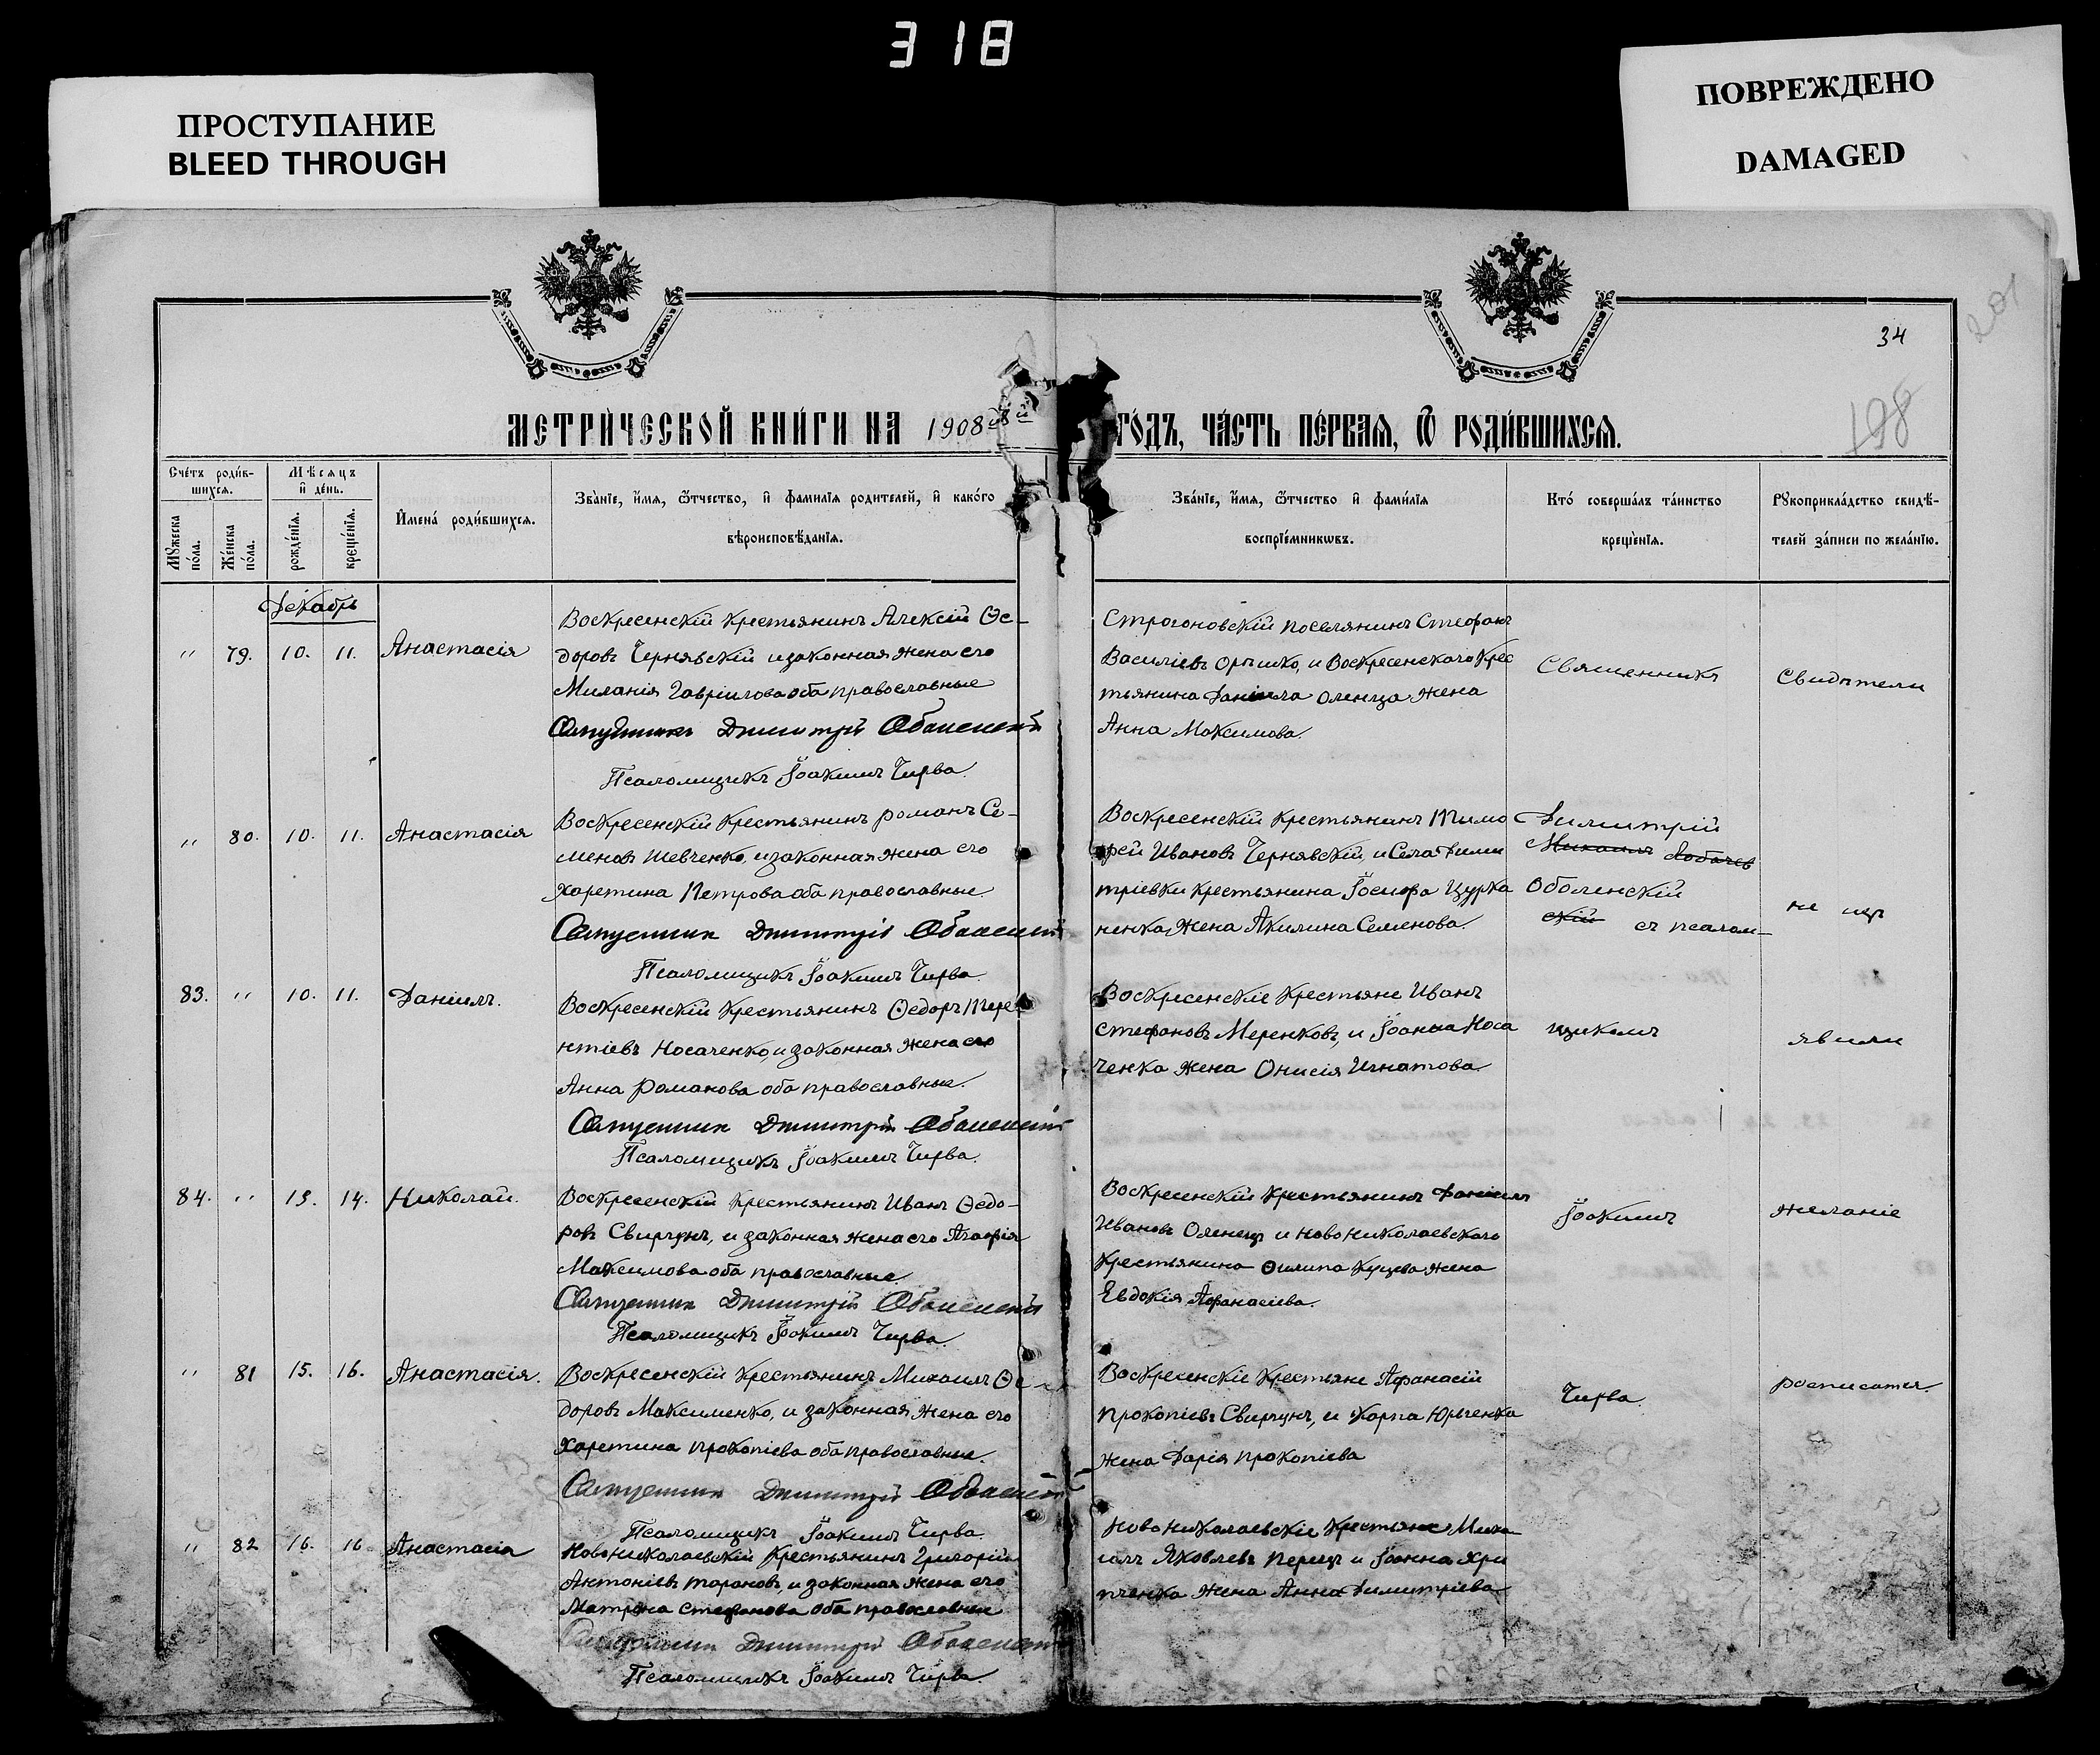 318
ПРОСТУПАНИЕ
BLEED THROUGH
ПОВРЕЖДЕНО
DAMAGED
201
34
198
МЕТРИ́ЧЕСКОЙ КНИ́ГИ НА 1908й
ГО́ДЪ, ЧА́СТЬ ПЕ́РВАЯ, Ѿ РОДИ́ВШИХСЯ.
Сче́тъ роди́в-
шихся.
Мѣсяцъ
и҆ де́нь.
Мꙋжеска
по́ла.
Же́нска
по́ла.
рожде́нїѧ.
креще́нїѧ.
И҆мена̀ роди́вшихсѧ.
Зва́нїе, и҆́мѧ, ѻ҆́тчество, и҆ фамилїѧ родителей, и҆ како́го
вѣроисповѣ́данїѧ.
Зва́нїе, и҆́мѧ, ѻ҆́тчество и҆ фами́лїѧ
воспрїе́мникѡвъ.
Кто̀ соверша́лъ та́инство
креще́нїѧ.
Рꙋкоприкла́дство свидѣ́-
телей за́писи по жела́нїю.
Декабрь
" 79. 10. 11. Анастасія
Воскресенскій крестьянинъ Алексій Ѳе-
доровъ Чернявскій и законная жена его
Миланія Гавріилова оба православные
Священникъ Димитрій Оболенскій
Псаломщикъ Іоакимъ Чирва.
Строгоновскій поселянинъ Стефанъ
Василіевъ Орышко, и Воскресенскаго крес
тьянина Даніила Оленца жена
Анна Максимова.
Священникъ
Свидѣтели
" 80. 10. 11. Анастасія
Воскресенскій крестьянинъ Романъ Се-
меновъ Шевченко, и законная жена его
Харетина Петрова оба православные.
Священник Димитрій Оболенскій
Псаломщикъ Іоакимъ Чирва
Воскресенскій крестьянинъ Тимо
фей Ивановъ Чернявскій, и Села Дими
тріевки крестьянина Іосифа Цурка
ненка жена Акилина Семенова.
Димитрій
Михаилъ Лобачев
Оболенскій
скій съ псалом-
не изъ
83. " 10. 11. Даніилъ.
Воскресенскій крестьянинъ Ѳедоръ Тере
нтіевъ Носаченко, и законная жена его
Анна Романова оба православные.
Священник Димитрій Оболенскій
Псаломщикъ Іоакимъ Чирва.
Воскресенскіе крестьяне Иванъ
Стефановъ Меренковъ, и Іоанна Носа
ченка жена Онисія Игнатова
щикомъ
явили
84. " 13. 14. Николай.
Воскресенскій крестьянинъ Иванъ Ѳедо-
ровъ Свиргунъ, и законная жена его Агафія
Максимова оба православные.
Священник Димитрій Оболенскій
Псаломщикъ Іоакимъ Чирва
Воскресенскій крестьянинъ Даніилъ
Ивановъ Оленецъ и Ново Николаевскаго
крестьянина Филипа Куцева жена
Евдокія Афанасіева.
Іоакимъ
желаніе
" 81 15. 16. Анастасія.
Воскресенскій крестьянинъ Михаилъ Ѳе-
доровъ Максименко, и законная жена его
Харетина Прокопіева оба православные.
Священник Димитрій Оболенскій
Псаломщикъ Іоакимъ Чирва
Воскресенскіе крестьяне Афанасій
Прокопіевъ Свиргунъ, и Карпа Юрченка
жена Дарія Прокопіева
Чирва
росписатся.
" 82 16. 16 Анастасія
Ново Николаевскій крестьянинъ Григорій
Антоніевъ Тарановъ, и законная жена его
Матрона Стефанова оба православные
Священник Димитрій Оболенскій
Псаломщикъ Іоакимъ Чирва.
Ново Николаевскіе крестьяне Миха
илъ Яковлевъ Перецъ и Іоанна Хри
пченка жена Анна Димитріева